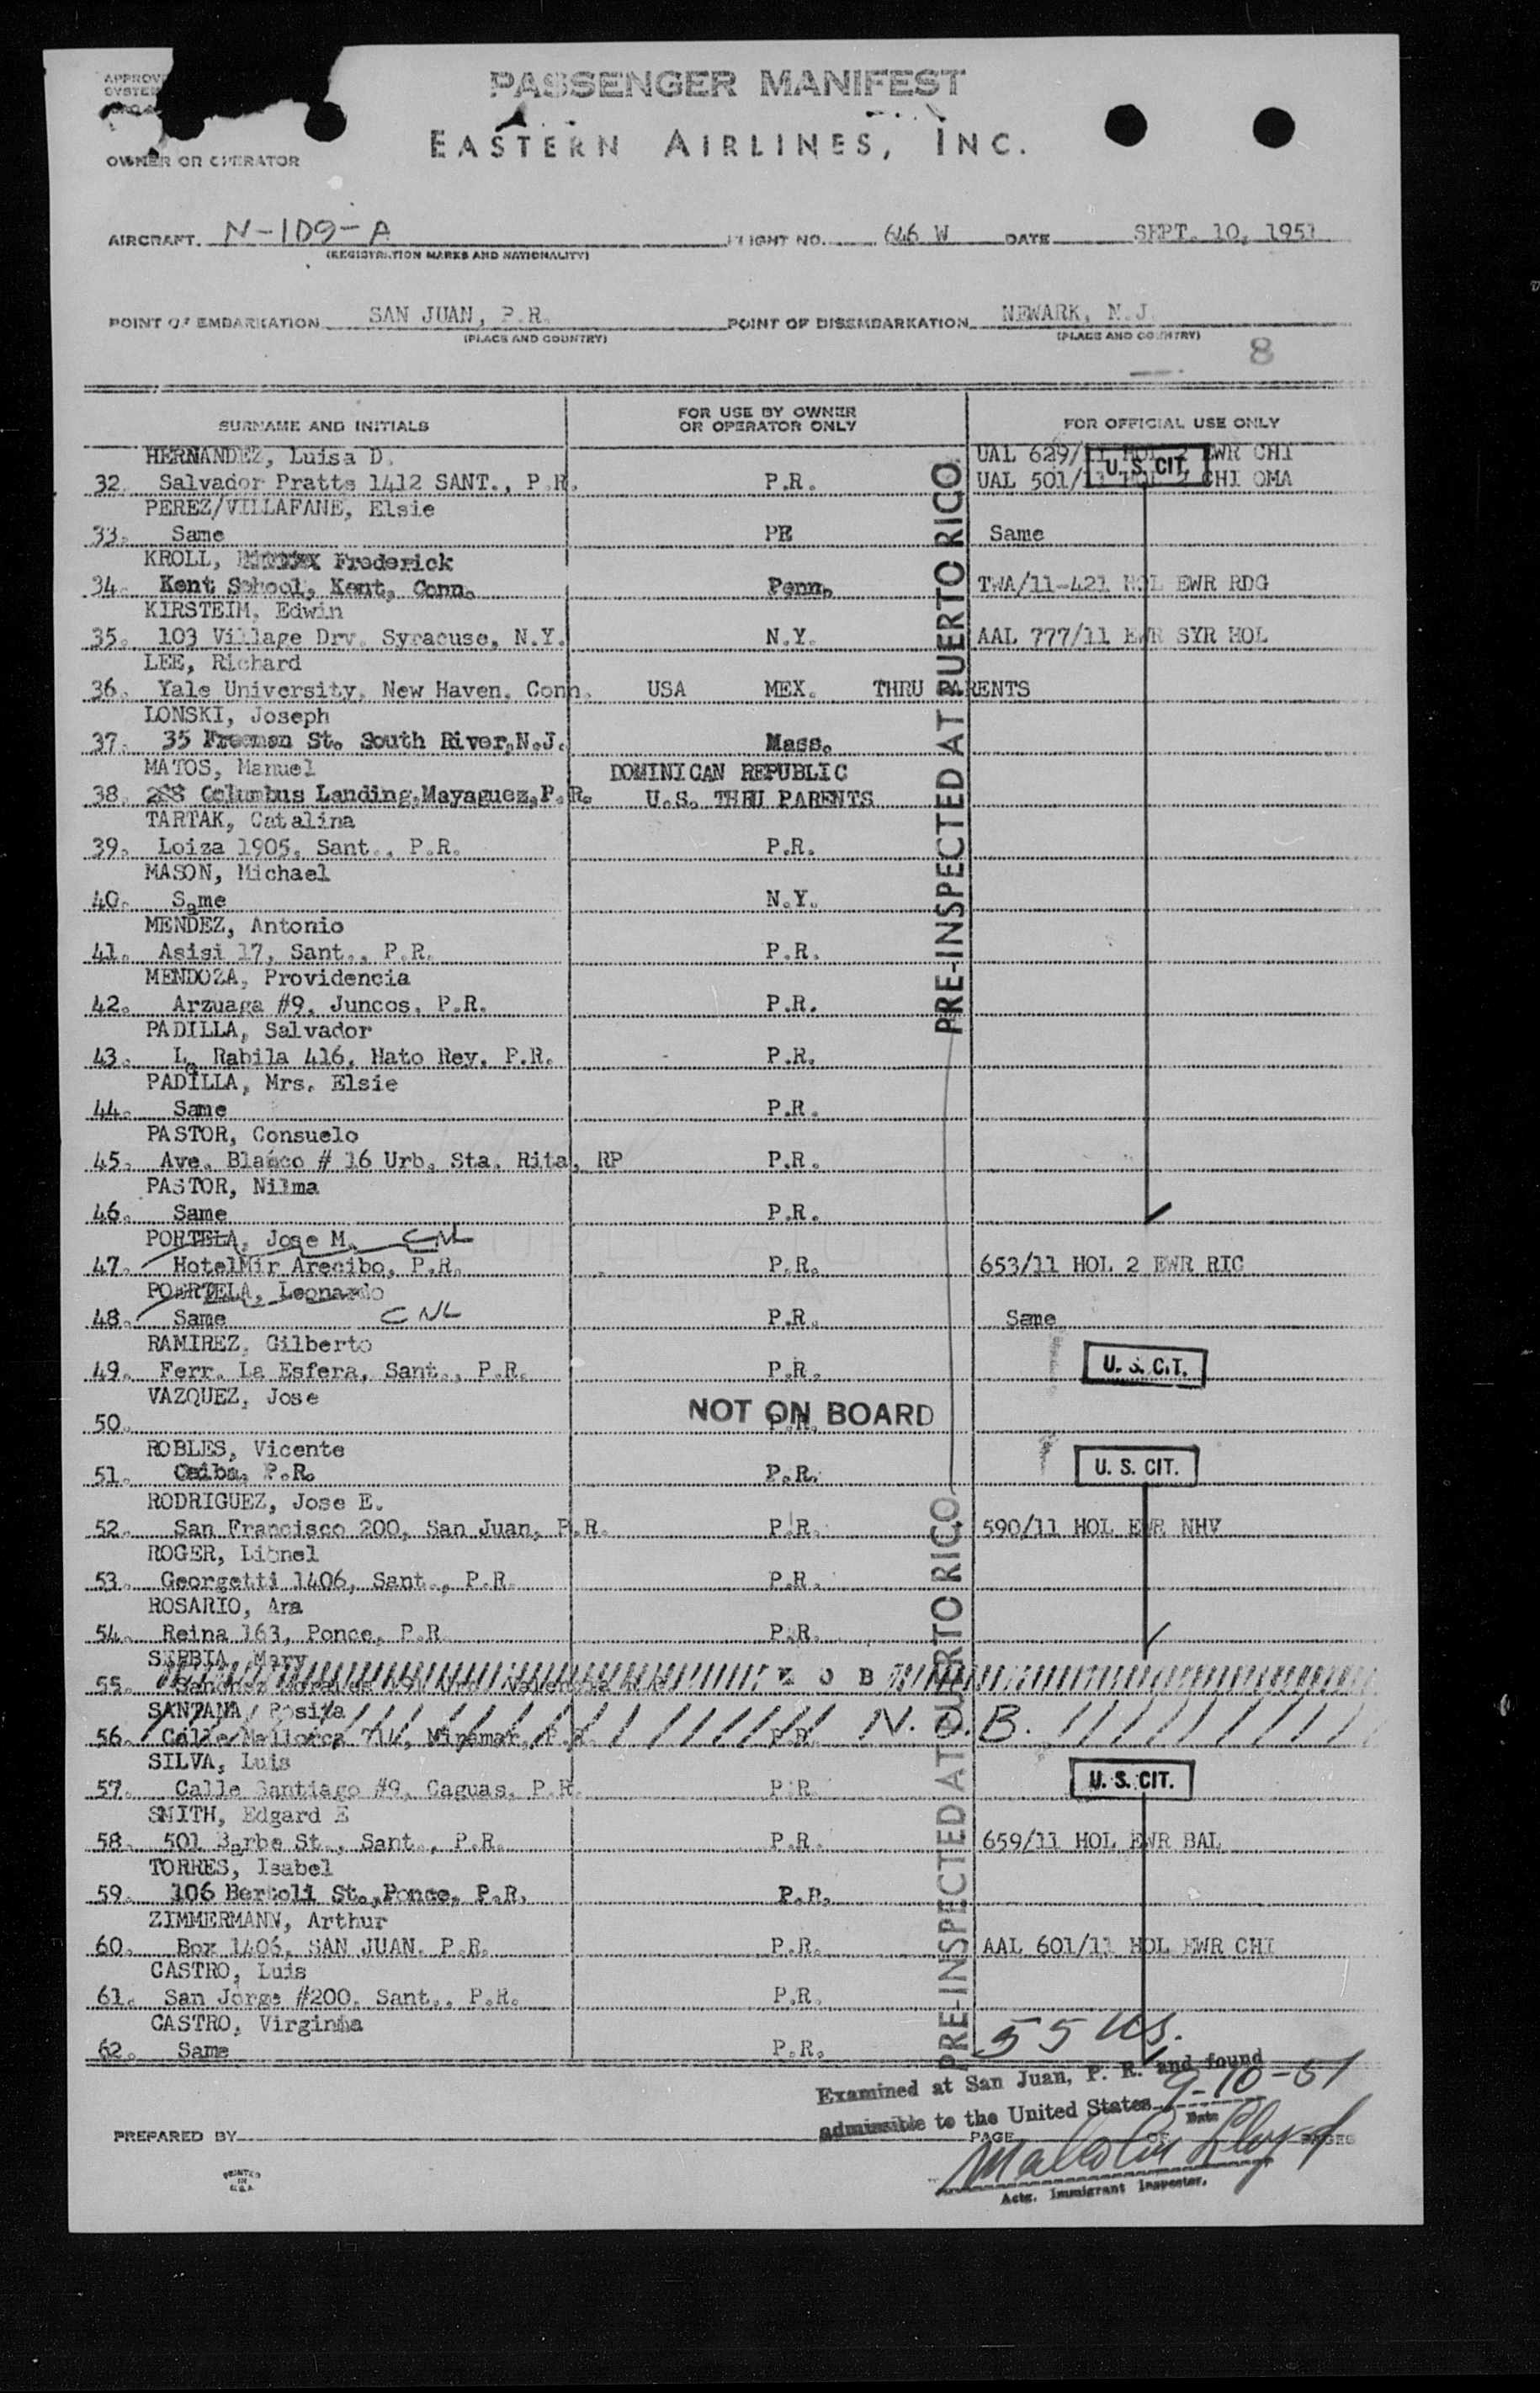 PASSENGER MANIFEST
EASTERN AIRLINES, INC.
OWNER OR OPERATOR
AIRCRAFT N-109-A FLIGHT NO. 646 W DATE SEPT. 10, 1951
(REGISTRATION MARKS AND NATIONALITY)
POINT OF EMBARKATION SAN JUAN, P.R. POINT OF DISEMBARKATION NEWARK, N.J.
(PLACE AND COUNTRY) (PLACE AND COUNTRY)
8
SURNAME AND INITIALS FOR USE BY OWNER OR OPERATOR ONLY FOR OFFICIAL USE ONLY
HERNANDEZ, Luisa D. UAL 629/11 HOL 2 EWR CHI
32. Salvador Pratts 1412 SANT., P.R. P.R. UAL 501/11 HOL 2 CHI OMA
U. S. CIT.
PEREZ/VILLAFANE, Elsie
33. Same PR Same
KROLL, Frederick
34. Kent School, Kent, Conn. Penn. TWA/11-421 HOL EWR RDG
KIRSTEIM, Edwin
35. 103 Village Drv. Syracuse, N.Y. N.Y. AAL 777/11 EWR SYR HOL
LEE, Richard
36. Yale University, New Haven, Conn. USA MEX. THRU PARENTS
LONSKI, Joseph
37. 35 Freeman St. South River,N.J. Mass.
MATOS, Manuel DOMINICAN REPUBLIC
38. 288 Columbus Landing,Mayaguez,P.R. U.S. THRU PARENTS
TARTAK, Catalina
39. Loiza 1905, Sant., P.R. P.R.
MASON, Michael
40. Same N.Y.
MENDEZ, Antonio
41. Asisi 17, Sant., P.R. P.R.
MENDOZA, Providencia
42. Arzuaga #9, Juncos, P.R. P.R.
PADILLA, Salvador
43. La Rabila 416, Hato Rey, P.R. P.R.
PADILLA, Mrs. Elsie
44. Same P.R.
PASTOR, Consuelo
45. Ave. Blanco # 16 Urb. Sta. Rita, RP P.R.
PASTOR, Nilma
46. Same P.R.
PORTELA, Jose M. CNL
47. HotelMir Arecibo, P.R. P.R. 653/11 HOL 2 EWR RIC
POARTELA, Leonardo
48. Same CNL P.R. Same
RAMIREZ, Gilberto
49. Ferr. La Esfera, Sant., P.R. P.R. U. S. CIT.
VAZQUEZ, Jose
50. NOT ON BOARD P.R.
ROBLES, Vicente
51. Ceiba, P.R. P.R. U. S. CIT.
RODRIGUEZ, Jose E.
52. San Francisco 200, San Juan, P.R. P.R. 590/11 HOL EWR NHV
ROGER, Lionel
53. Georgetti 1406, Sant., P.R. P.R.
ROSARIO, Ara
54. Reina 163, Ponce, P.R. P.R.
SERBIA, Mary
55. N O B
SANTANA, Rosita
56. Calle Mallorca 714, Miramar, P.R. P.R. N.O.B.
SILVA, Luis
57. Calle Santiago #9, Caguas, P.R. P.R. U. S. CIT.
SMITH, Edgard E
58. 501 Barbe St., Sant., P.R. P.R. 659/11 HOL EWR BAL
TORRES, Isabel
59. 106 Bertoli St.,Ponce, P.R. P.R.
ZIMMERMANN, Arthur
60. Box 1406, SAN JUAN. P.R. P.R. AAL 601/11 HOL EWR CHI
CASTRO, Luis
61. San Jorge #200. Sant., P.R. P.R.
CASTRO, Virginia
62. Same P.R. 55 US.
PRE-INSPECTED AT PUERTO RICO
PRE-INSPECTED AT PUERTO RICO
Examined at San Juan, P. R. and found
admissible to the United States 9-10-51
Date
PREPARED BY PAGE OF PAGES
Malcolm Lloyd
Actg. Immigrant Inspector.
PRINTED
IN
U.S.A.